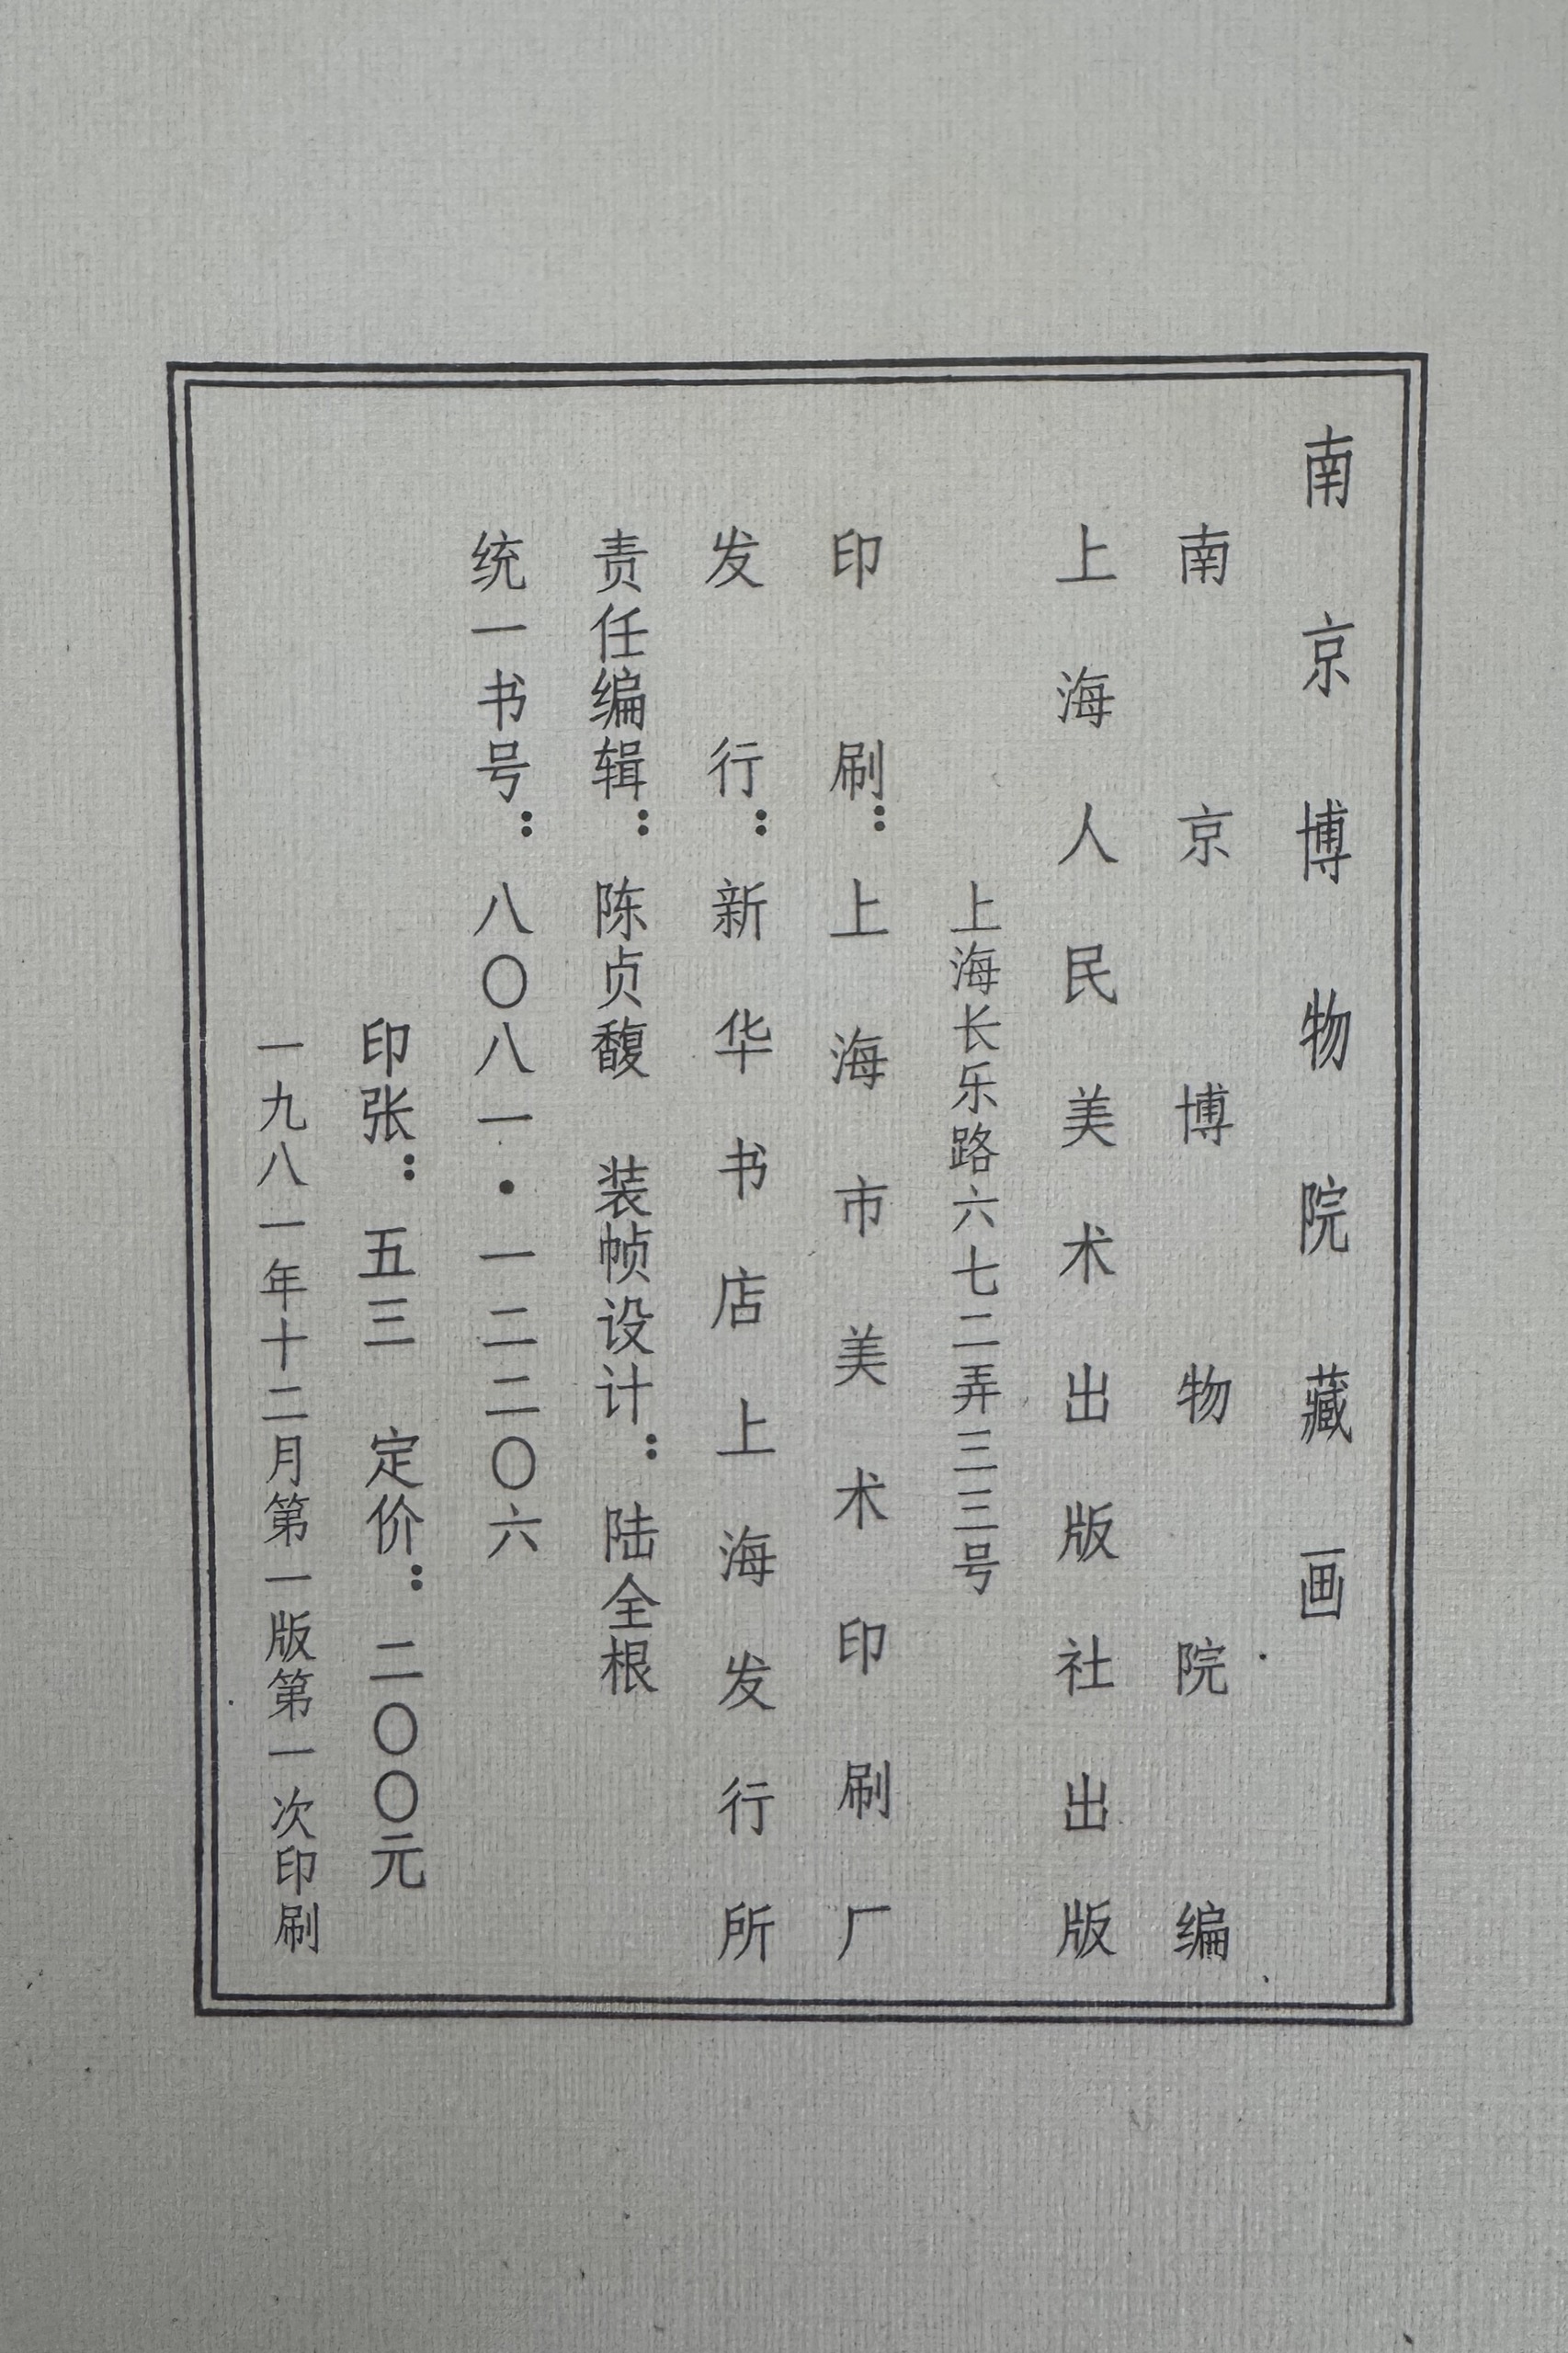 南京博物院藏画
南京博物院编
上海人民美术出版社出版
上海长乐路六七二弄三三号
印刷：上海市美术印刷厂
发行：新华书店上海发行所
责任编辑：陈贞馥 装帧设计：陆全根
统一书号：八〇八一·一二二〇六
印张：五三 定价：二〇〇元
一九八一年十二月第一版第一次印刷